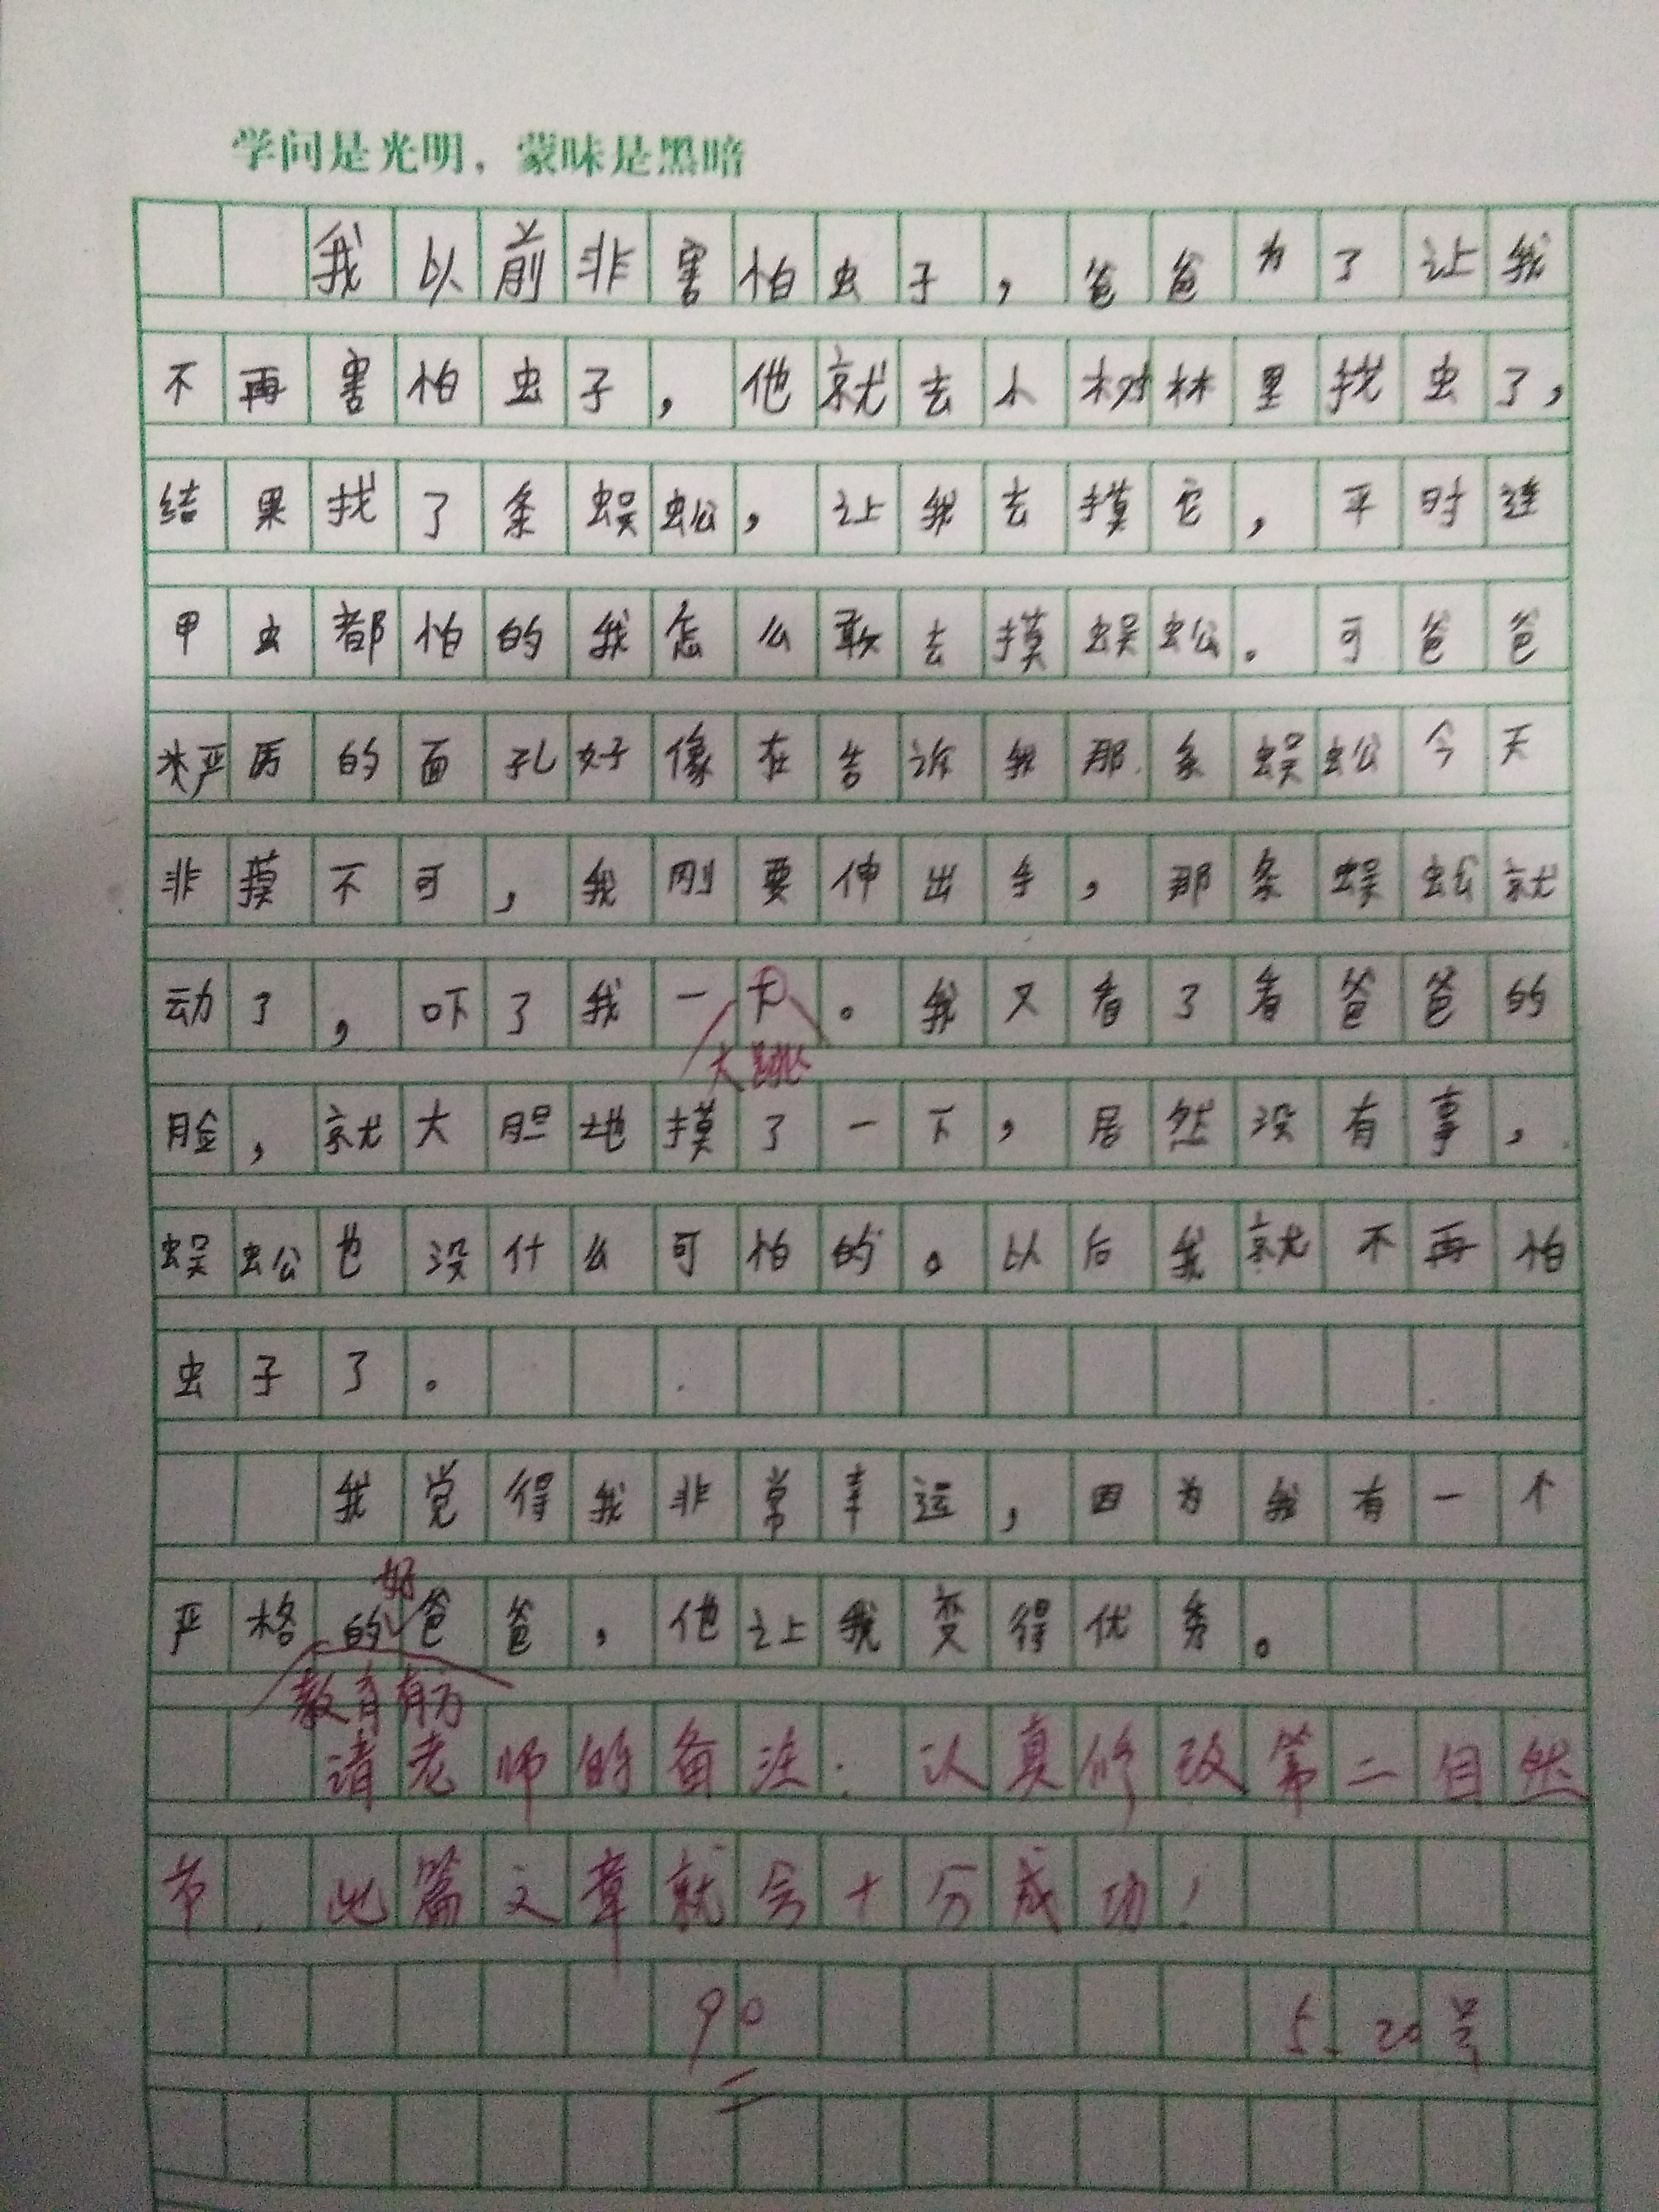 学问是光明，蒙昧是黑暗
我以前非害怕虫子，爸爸为了让我
不再害怕虫子，他就去小树林里找虫了，
结果找了条蜈蚣，让我去摸它，平时连
甲虫都怕的我怎么敢去摸蜈蚣。可爸爸
严厉的面孔好像在告诉我那条蜈蚣今天
非摸不可，我刚要伸出手，那条蜈蚣就
动了，吓了我一大。我又看了看爸爸的
大跳
脸，就大胆地摸了一下，居然没有事，
蜈蚣也没什么可怕的。以后我就不再怕
虫子了。
我觉得我非常幸运，因为我有一个
好
严格的爸爸，他让我变得优秀。
教育有方
请老师的备注：认真修改第二自然
节，此篇文章就会十分成功！
90
5.20号